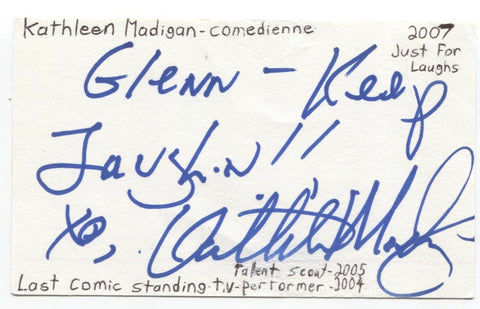 Kathleen Madigan-comedienne
2007
Just For
Laughs
Glenn - Keep
Laughin!!
xo, Kathleen Madigan
talent scout-2005
Last Comic standing-t.v-performer-2004